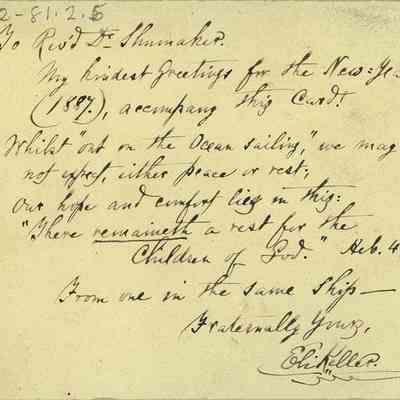 2-81.2.5
To Rev'd Dr. Shumaker.
My kindest Greetings for the New=Yea
(1887.), accompany this Card!
Whilst "out on the Ocean sailing," we may
not expect, either peace or rest;
Our hope and comfort lies in this:
"There remaineth a rest for the
Children of God." Heb. 4
From one in the same Ship—
Fraternally Yours,
Eli Keller.